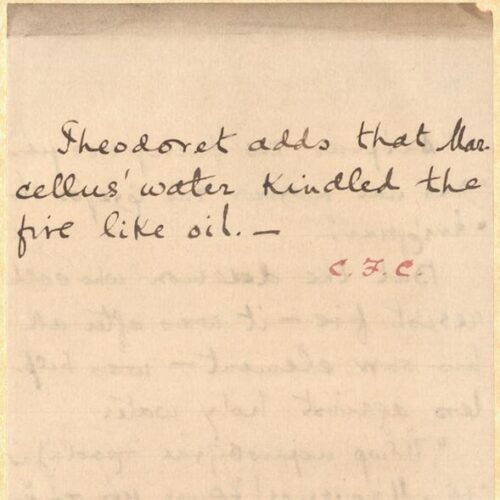 Theodoret adds that Mar-
cellus' water kindled the
fire like oil. —
C. F. C